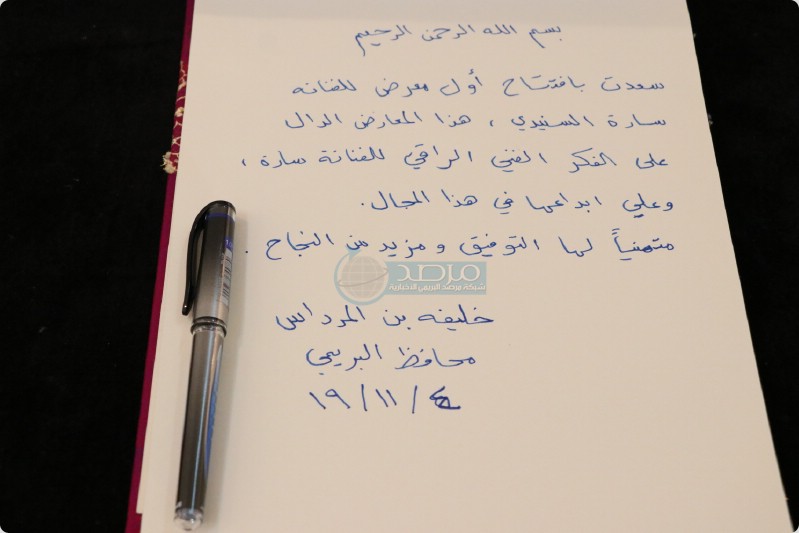 بسم الله الرحمن الرحيم
سعدت بافتتاح أول معرض للفنانه
سارة السنيدي ، هذا المعارض الدال
على الفكر الفني الراقي للفنانة سارة ،
وعلي ابداعها في هذا المجال .
متمنياً لها التوفيق و مزيد من النجاح .
مرصد
شبكة مرصد البريمي الاخبارية
خليفه بن المرداس
محافظ البريمي
١٩/١١/٤